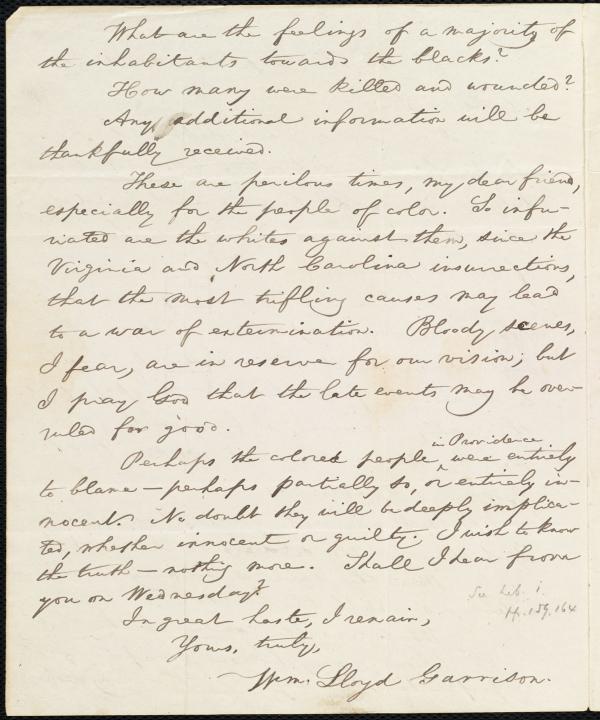 What are the feelings of a majority of
the inhabitants towards the blacks?
How many were killed and wounded?
Any additional information will be
thankfully received.
These are perilous times, my dear friend,
especially for the people of color. So infu-
riated are the whites against them, since the
Virginia and North Carolina insurrections,
that the most trifling causes may lead
to a war of extermination. Bloody scenes,
I fear, are in reserve for our vision; but
I pray God that the late events may be over-
ruled for good.
in Providence
Perhaps the colored people ^ were entirely
to blame — perhaps partially so, or entirely in-
nocent. No doubt they will be deeply implica-
ted, whether innocent or guilty. I wish to know
the truth — nothing more. Shall I hear from
you on Wednesday?
See Lib. 1.
pp. 159, 164
In great haste, I remain,
Yours, truly,
Wm. Lloyd Garrison.